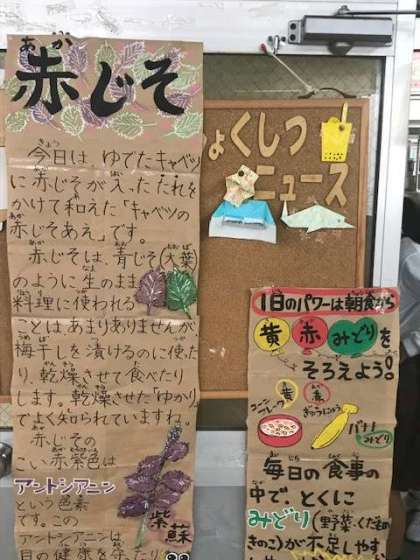 赤じそ
今日は、ゆでたキャベツ
に赤じそが入ったたれを
かけて和えた「キャベツの
赤じそあえ」です。
赤じそは、青じそ(大葉)
のように生のまま
料理に使われる
ことはあまりありませんが
梅干しを漬けるのに使った
り、乾燥させて食べたり
します。乾燥させた「ゆかり」
でよく知られていますね。
赤じその
こい赤紫色は
アントシアニン
という色素
です。この
アントシアニンは
目の健康を守ったり
紫蘇
ょくしつ
ニュース
1日のパワーは朝食から
黄 赤 みどりを
そろえよう!
コーンフレーク 黄
赤 ぎゅうにゅう
バナナ みどり
毎日の食事の
中で、とくに
みどり(野菜、くだもの
きのこ)が不足しやす